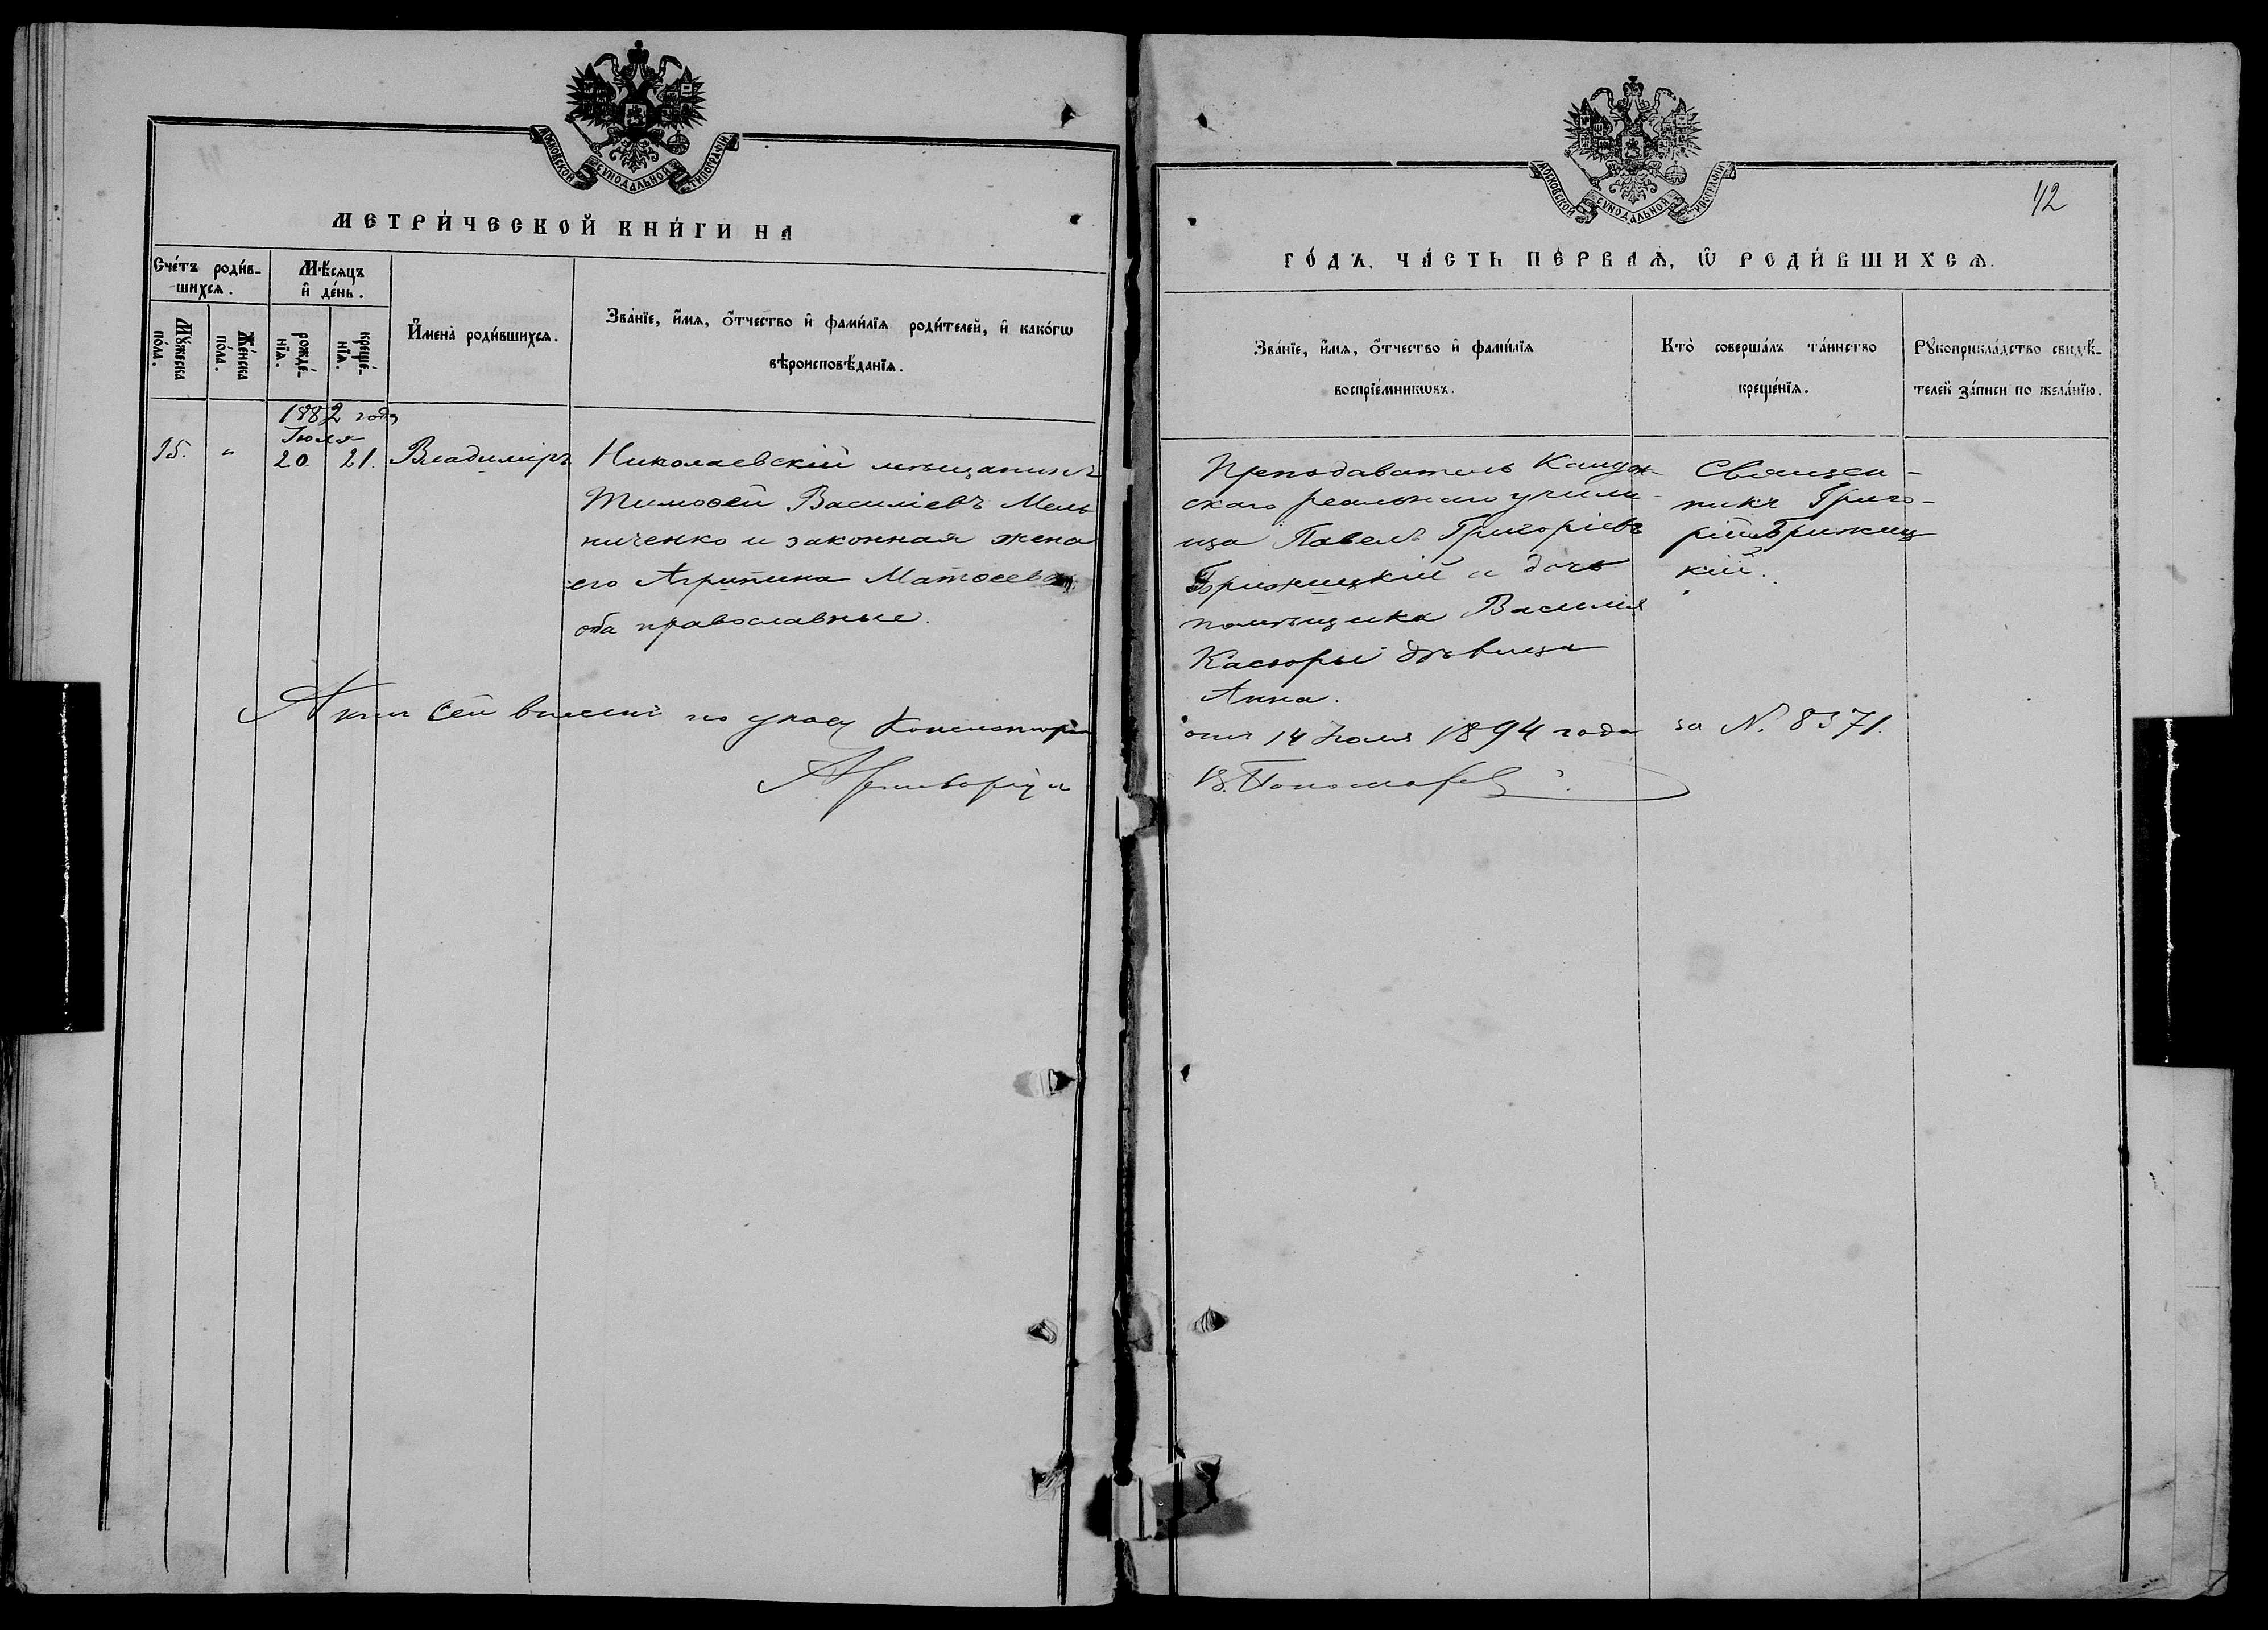 МОСКОВСКОЙ СѴНОДАЛЬНОЙ ТИПОГРАФІИ
МЕТРИ́ЧЕСКОЙ КНИ́ГИ НА
Сче́тъ роди́в-
шихсѧ.
Мѣ́сѧцъ
и҆ де́нь.
Мꙋ́жеска
по́ла.
Же́нска
по́ла.
рожде́-
нїѧ.
креще́-
нїѧ.
И҆мена̀ роди́вшихсѧ.
Зва́нїе, и҆́мѧ, ѻ҆́тчество и҆ фами́лїѧ роди́телей, и҆ како́гѡ
вѣроисповѣ́данїѧ.
1882 года
Іюля
15. „ 20. 21. Владиміръ
Николаевскій мѣщанинъ
Тимоѳей Василіевъ Мель
ниченко и законная жена
его Агрипина Матѳеева
оба православные.
Актъ сей внесенъ по указу Консисторіи
МОСКОВСКОЙ СѴНОДАЛЬНОЙ ТИПОГРАФІИ
42
ГО́ДЪ, ЧА́СТЬ ПЕ́РВАѦ, Ѡ҆ РОДИ́ВШИХСѦ.
Зва́нїе, и҆́мѧ, ѻ҆́тчество и҆ фами́лїѧ
воспрїе́мникѡвъ.
Кто̀ соверша́лъ та́инство
креще́нїѧ.
Рꙋкоприкла́дство свидѣ́-
телей за́писи по жела́нїю.
Преподаватель
скаго реальнаго учили-
ща Павелъ Григоріевъ
Брижицкій и дочь
помѣщика Василія
дѣвица
Анна.
Священ-
никъ Григо-
рій Брижиц
кій.
отъ 14 Іюля 1894 года за N. 8371.
В. Пономарев